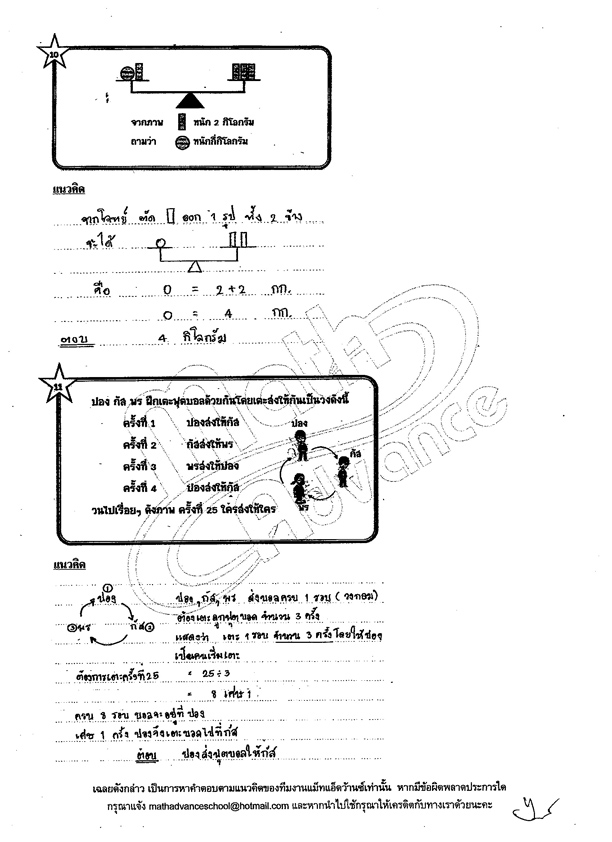 10
จากภาพ หนัก 2 กิโลกรัม
ถามว่า หนักกี่กิโลกรัม
แนวคิด
จากโจทย์ ตัด ออก 1 รูป ทั้ง 2 ข้าง
จะได้
คือ 0 = 2+2 กก.
0 = 4 กก.
ตอบ 4 กิโลกรัม
11
ปอง กัส พร ฝึกเตะฟุตบอลด้วยกันโดยเตะส่งให้กันเป็นวงดังนี้
ครั้งที่ 1 ปองส่งให้กัส
ปอง
ครั้งที่ 2 กัสส่งให้พร
กัส
ครั้งที่ 3 พรส่งให้ปอง
ครั้งที่ 4 ปองส่งให้กัส
พร
วนไปเรื่อยๆ ดังภาพ ครั้งที่ 25 ใครส่งให้ใคร
Math Advance
แนวคิด
①
ปอง
③พร กัส②
ปอง, กัส, พร ส่งบอลครบ 1 รอบ (วงกลม)
ต้องเตะลูกฟุตบอล จำนวน 3 ครั้ง
แสดงว่า เตะ 1 รอบ จำนวน 3 ครั้ง โดยให้ปอง
เป็นคนเริ่มเตะ
ต้องการเตะครั้งที่ 25 = 25÷3
= 8 เศษ 1
ครบ 8 รอบ บอลจะอยู่ที่ ปอง
เศษ 1 ครั้ง ปองจึงเตะบอลไปที่กัส
ตอบ ปองส่งฟุตบอลให้กัส
เฉลยดังกล่าว เป็นการหาคำตอบตามแนวคิดของทีมงานแม็ทแอ็ดว้านซ์เท่านั้น หากมีข้อผิดพลาดประการใด
กรุณาแจ้ง mathadvanceschool@hotmail.com และหากนำไปใช้กรุณาให้เครดิตกับทางเราด้วยนะคะ